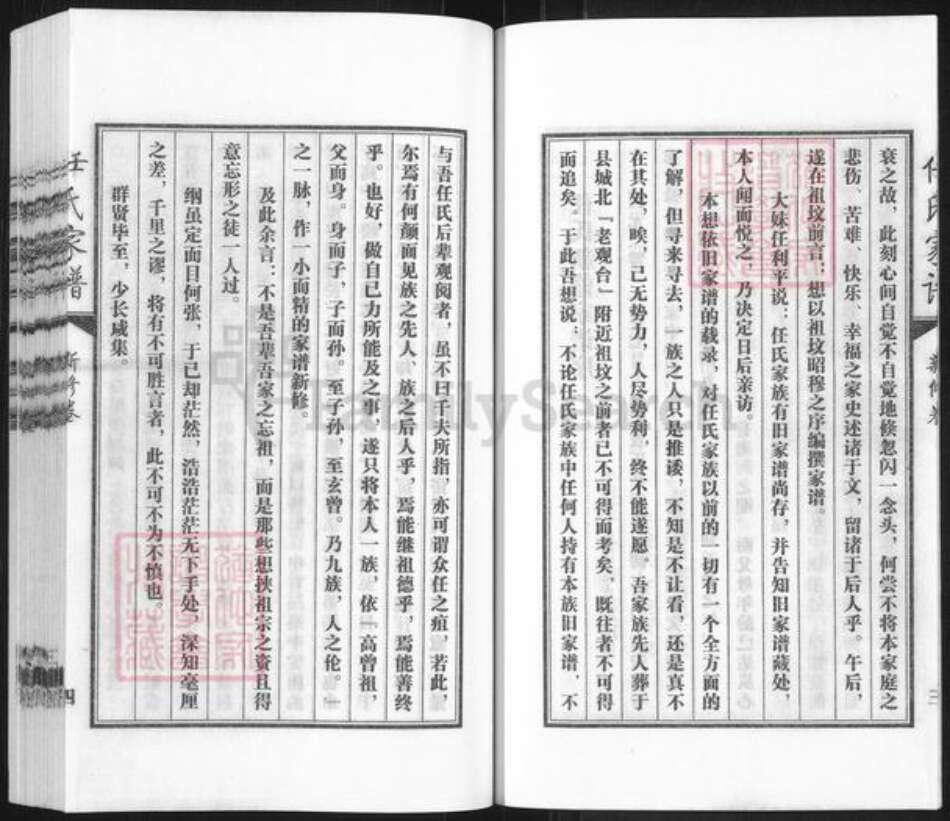 衰之故，此刻心间自觉不自觉地倏忽闪一念头，何尝不将本家庭之
悲伤、苦难、快乐、幸福之家史述诸于文，留诸于后人乎。午后，
遂在祖坟前言：想以祖坟昭穆之序编撰家谱。
大妹任利平说：任氏家族有旧家谱尚存，并告知旧家谱藏处，
本人闻而悦之，乃决定日后亲访。
本想依旧家谱的载录，对任氏家族以前的一切有一个全方面的
了解，但寻来寻去，一族之人只是推诿，不知是不让看，还是真不
在其处，唉，己无势力，人尽势利，终不能遂愿。吾家族先人葬于
县城北「老观台」附近祖坟之前者已不可得而考矣，既往者不可得
而追矣。于此吾想说：不论任氏家族中任何人持有本族旧家谱，不
三
任氏家谱
新修卷
与吾任氏后辈观阅者，虽不曰千夫所指，亦可谓众任之疽，若此，
尔焉有何颜面见族之先人、族之后人乎，焉能继祖德乎，焉能善终
乎。也好，做自己力所能及之事，遂只将本人一族，依「高曾祖，
父而身。身而子，子而孙。至子孙，至玄曾。乃九族，人之伦。」
之一脉，作一小而精的家谱新修。
及此余言：不是吾辈吾家之忘祖，而是那些想挟祖宗之资且得
意忘形之徒一人过。
纲虽定而目何张，于己却茫然，浩浩茫茫无下手处，深知毫厘
之差，千里之谬，将有不可胜言者，此不可不为不慎也。
群贤毕至，少长咸集。
任氏家谱
新修卷
四
FamilySearch